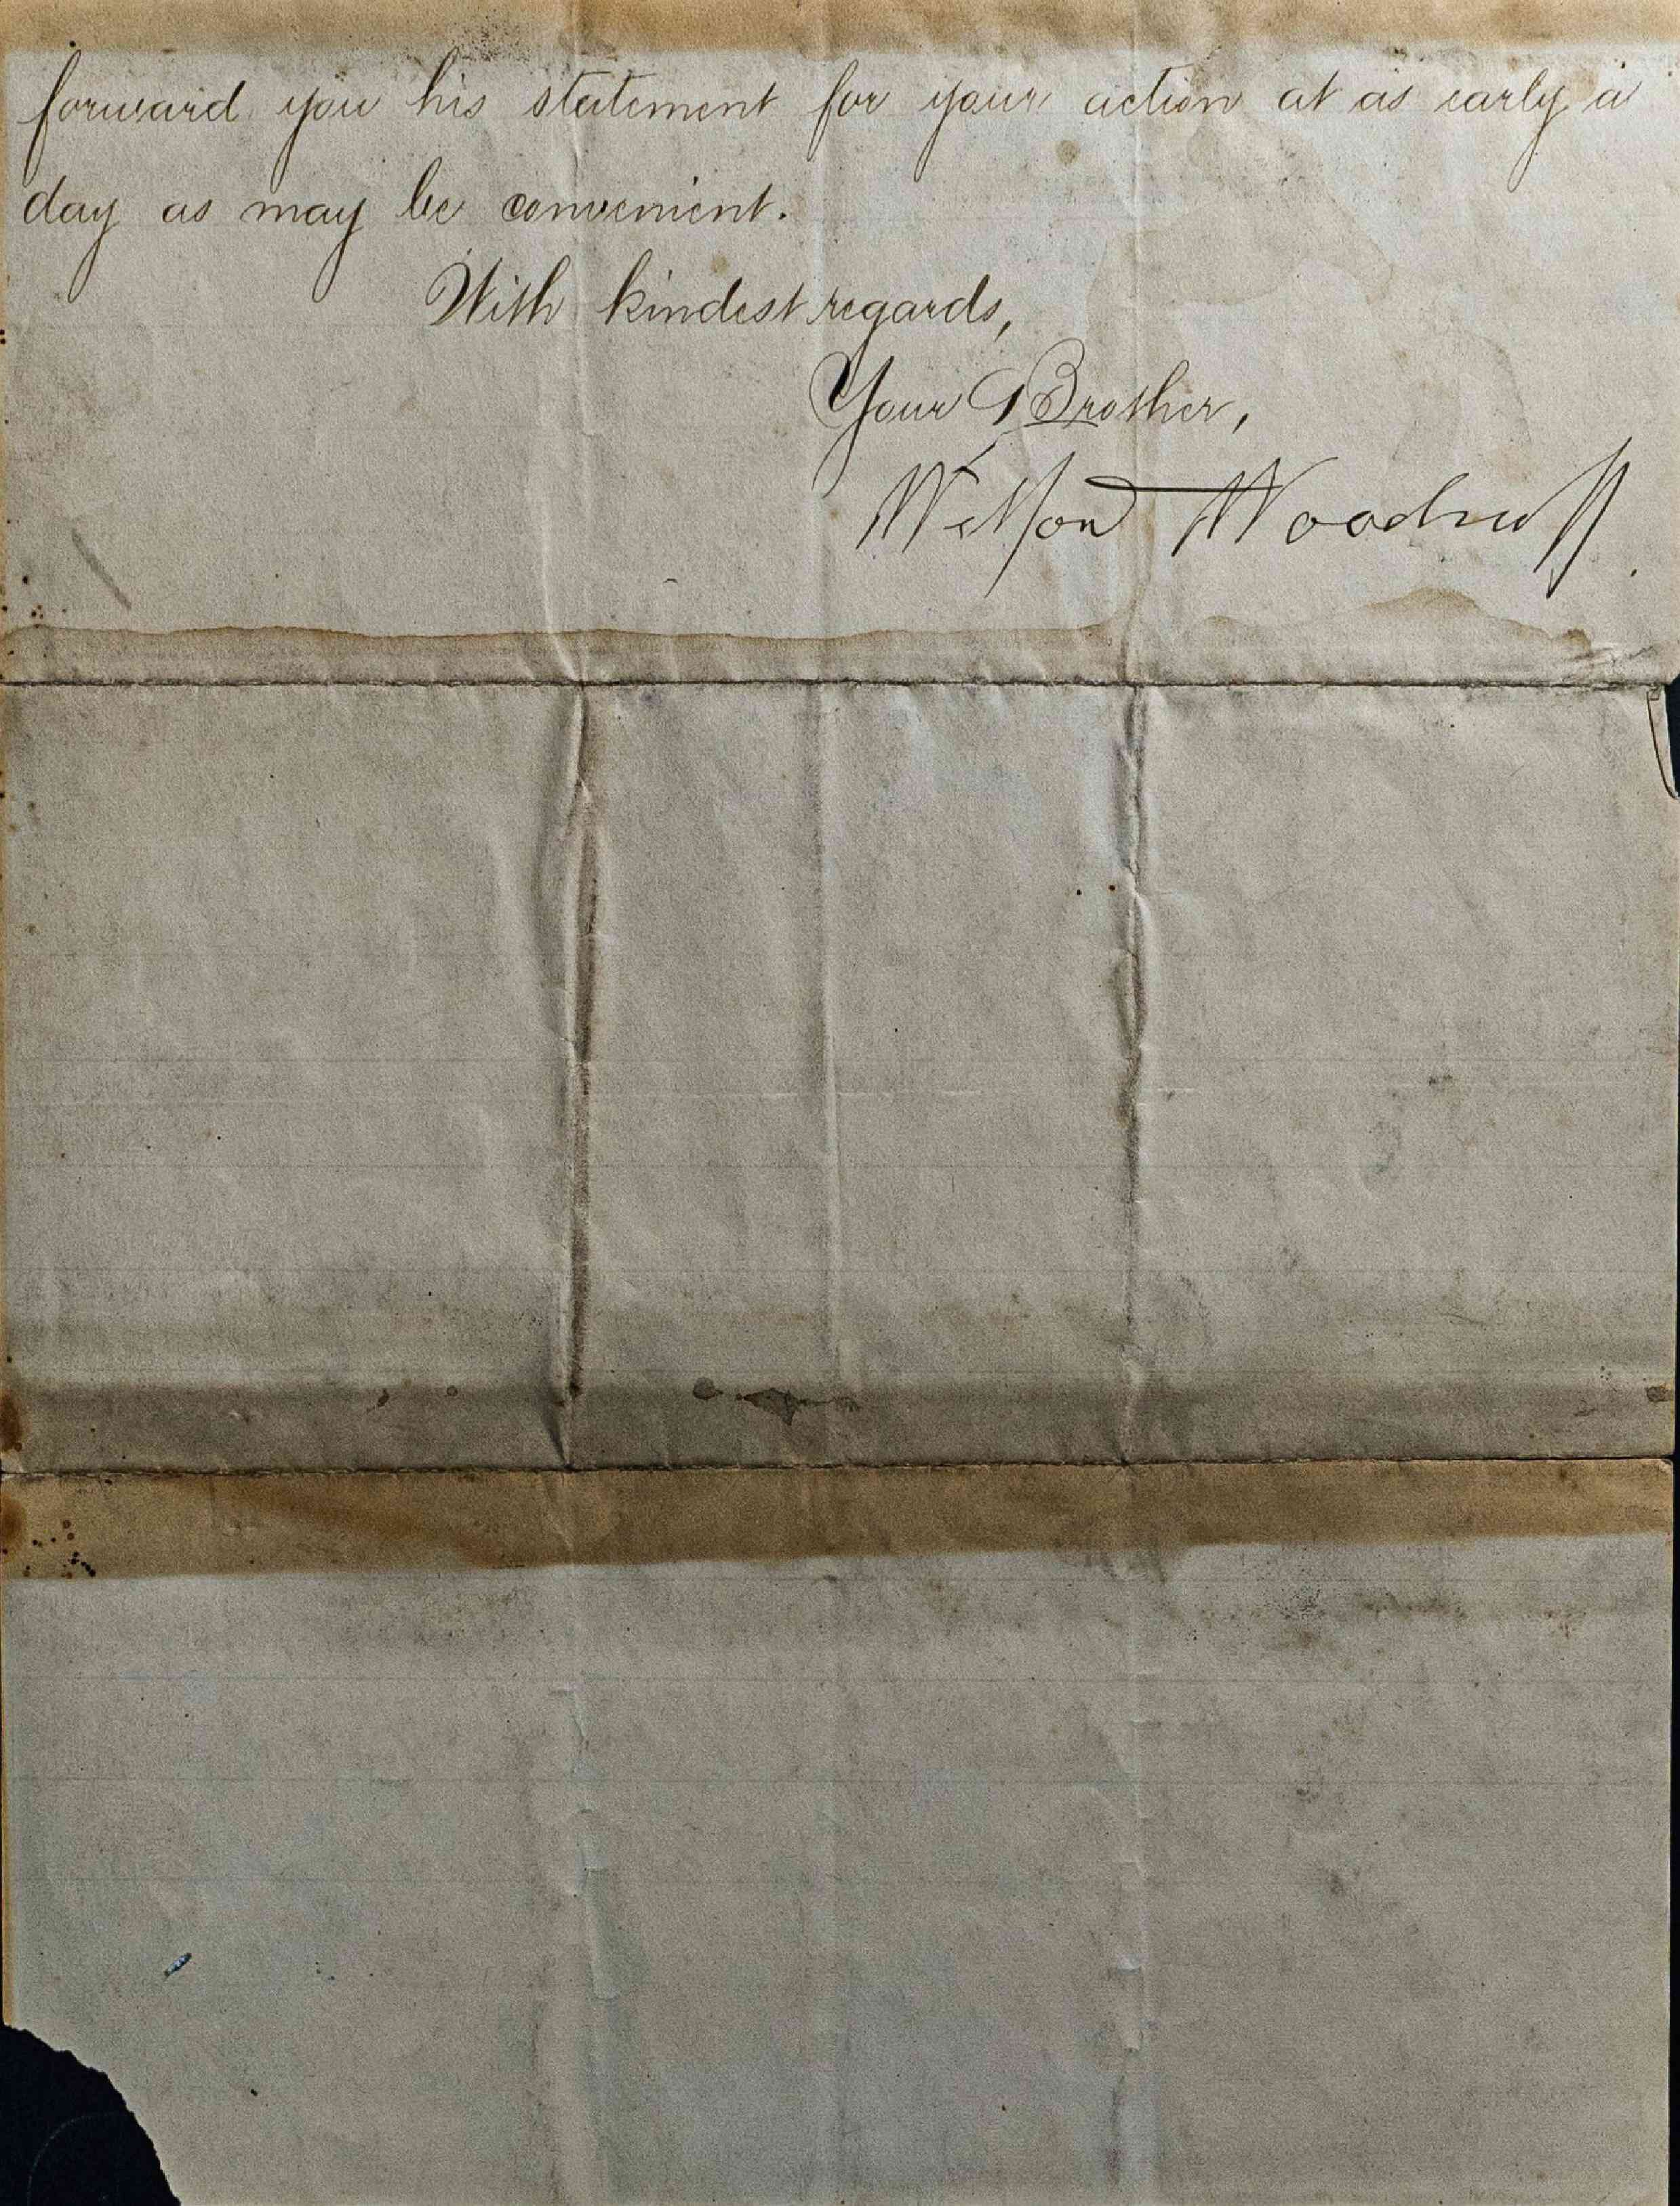 forward you his statement for your action at as early a
day as may be convenient.
With kindest regards,
Your Brother,
Wilford Woodruff.